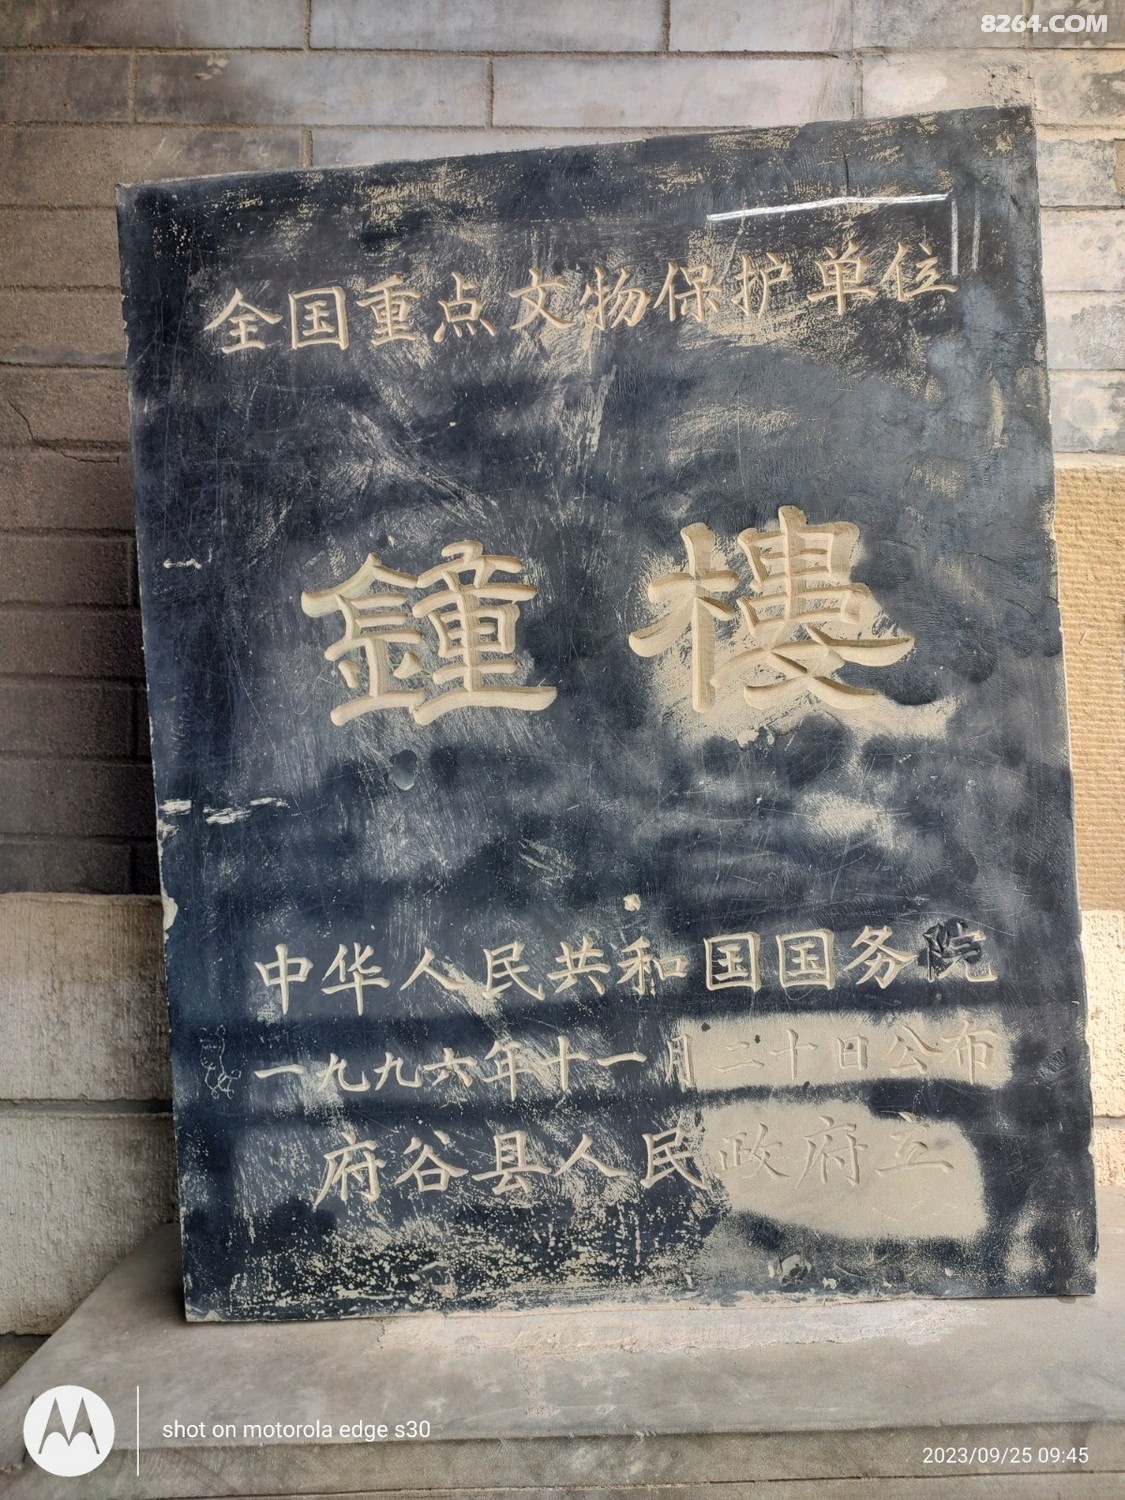 8264.COM
全国重点文物保护单位
鐘樓
中华人民共和国国务院
一九九六年十一月二十日公布
府谷县人民政府立
shot on motorola edge s30
2023/09/25 09:45